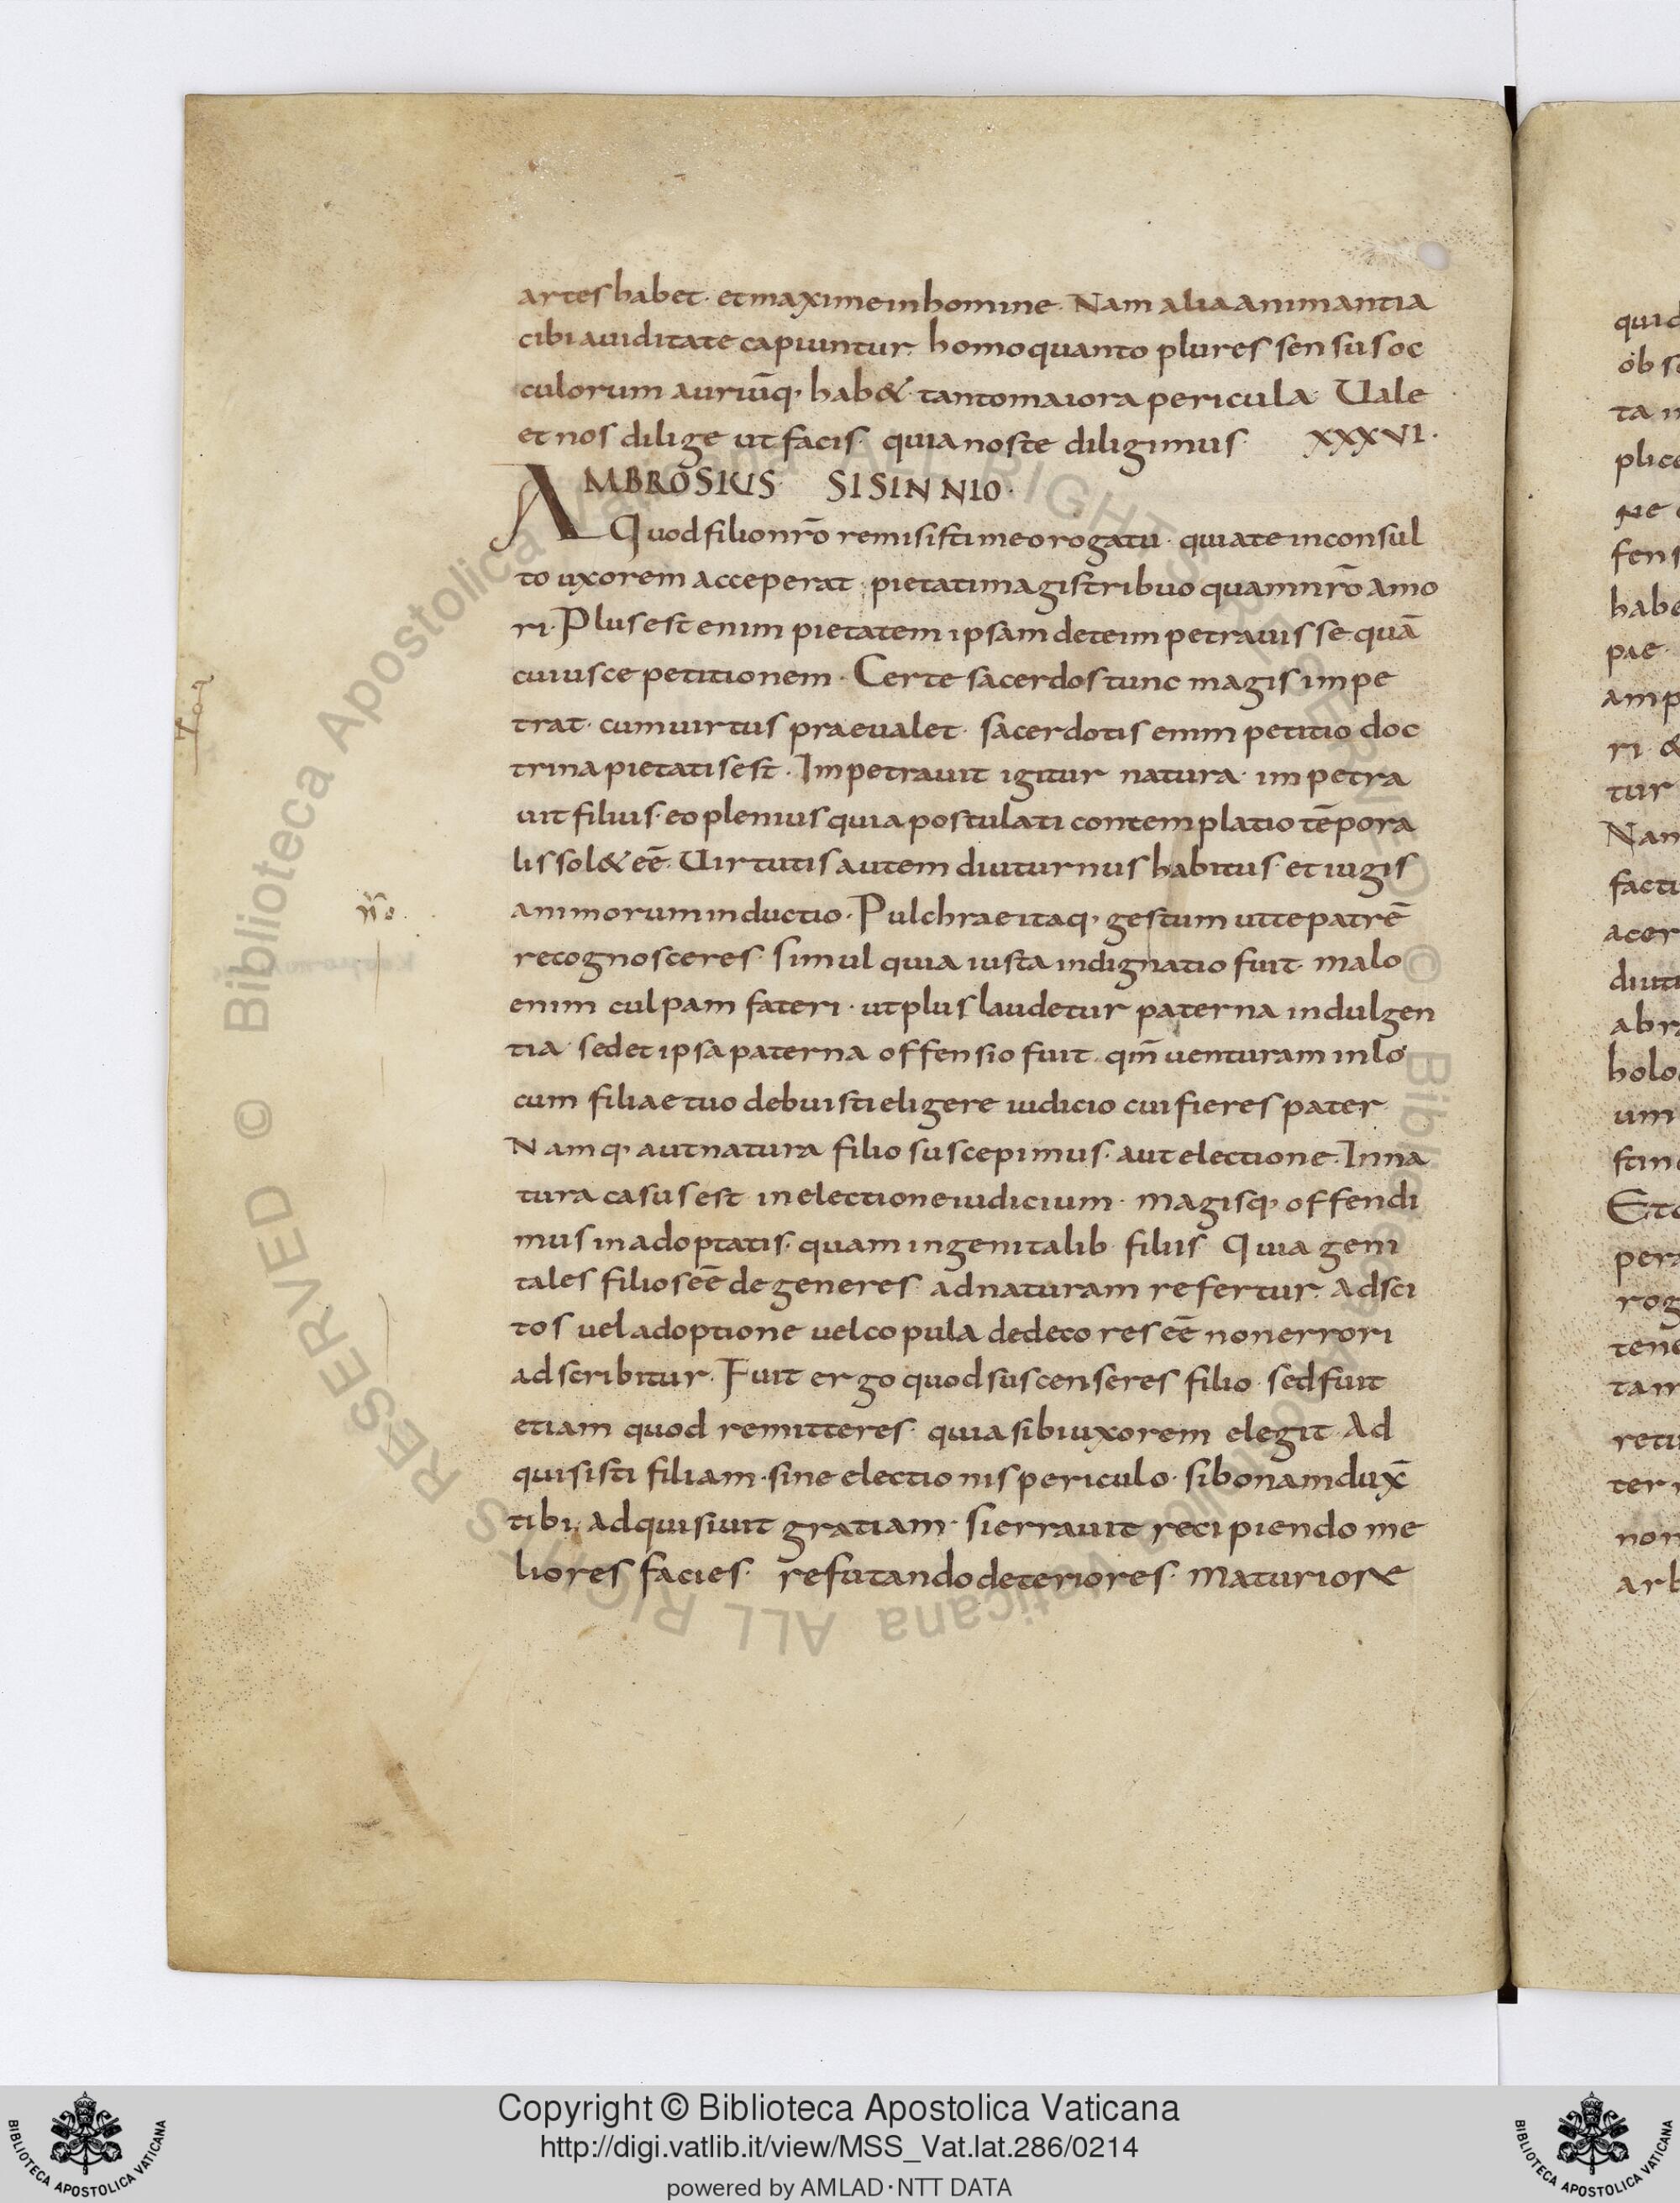 artes habet· et maxime in homine· Nam alia animantia
cibi auiditate capiuntur· homo quanto plures sensus oc
culorum auriūq· hab& tanto maiora pericula· Uale
et nos dilige ut facis· quia nos te diligimus· XXXVI·
AMBROSIUS· SISINNIO·
Quod filio nr̄o remisisti meo rogatu· quia te inconsul
to uxorem acceperat· pietati magis tribuo quam nr̄o amo
ri· Plus est enim pietatem ipsam de te impetrauisse quā
cuiusce petitionem· Certe sacerdos tunc magis impe
trat· cum uirtus praeualet· sacerdotis enim petitio doc
trina pietatis est· Impetrauit igitur natura· impetra
uit filius· eo plenius quia postulati contemplatio tēpora
lis sol& eē· Uirtutis autem diuturnus habitus· et iugis
animorum inductio· Pulchrae itaq· gestum ut te patrē
recognosceres· simul quia iusta indignatio fuit· malo
enim culpam fateri· ut plus laudetur paterna indulgen
tia· sed et ipsa paterna offensio fuit· qm̄ uenturam in lo
cum filiae tuo debuisti eligere iudicio cui fieres pater·
Namq· aut natura filio suscepimus· aut electione· In na
tura casus est in electione iudicium· magisq· offendi
mus in adoptatis· quam in genitalib· filiis· Quia geni
tales filios eē degeneres ad naturam refertur· Adsci
tos uel adoptione uel copula dedecores eē non errori
adscribitur· Fuit ergo quod suscenseres filio· sed fuit
etiam quod remitteres· quia sibi uxorem elegit· Ad
quisisti filiam· sine electionis periculo· si bonam dux̄
tibi· adquisiuit gratiam· si errauit recipiendo me
liores facies· refutando deteriores· maturiore
Copyright © Biblioteca Apostolica Vaticana
http://digi.vatlib.it/view/MSS_Vat.lat.286/0214
powered by AMLAD·NTT DATA
BIBLIOTECA APOSTOLICA VATICANA
BIBLIOTECA APOSTOLICA VATICANA
© Biblioteca Apostolica Vaticana ALL RIGHTS RESERVED © Biblioteca Apostolica Vaticana ALL RIGHTS RESERVED